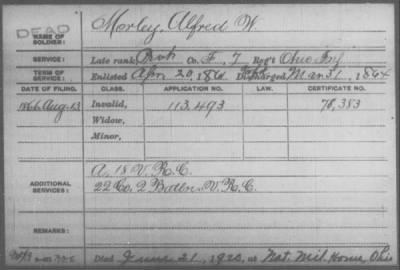 DEAD
NAME OF SOLDIER: Morley, Alfred W.
SERVICE: Late rank, Co. F, 7 Reg't Ohio Inf
TERM OF SERVICE: Enlisted Apr. 20, 1861 Discharged, Mar 31, 1864
DATE OF FILING. CLASS. APPLICATION NO. LAW. CERTIFICATE NO.
1866 Aug. 13 Invalid, 113,493 78,383
Widow,
Minor,
ADDITIONAL SERVICES: A, 18 V. R. C.
22 Co. 2 Battn. V. R. C.
REMARKS:
Died June 21, 1920, at Nat. Mil. Home, Ohio